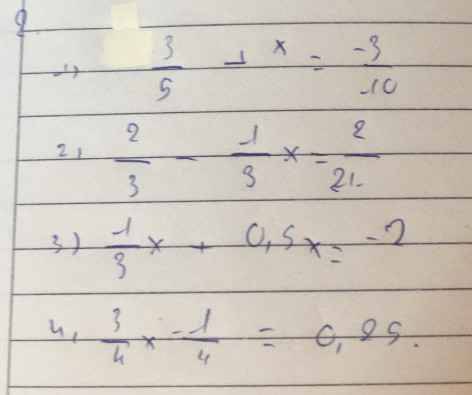 2.
1) 3/5 + x = -3/10
2, 2/3 - 1/3 x = 2/21
3) 1/3 x + 0,5 x = -2
4, 3/4 x - 1/4 = 0,25.